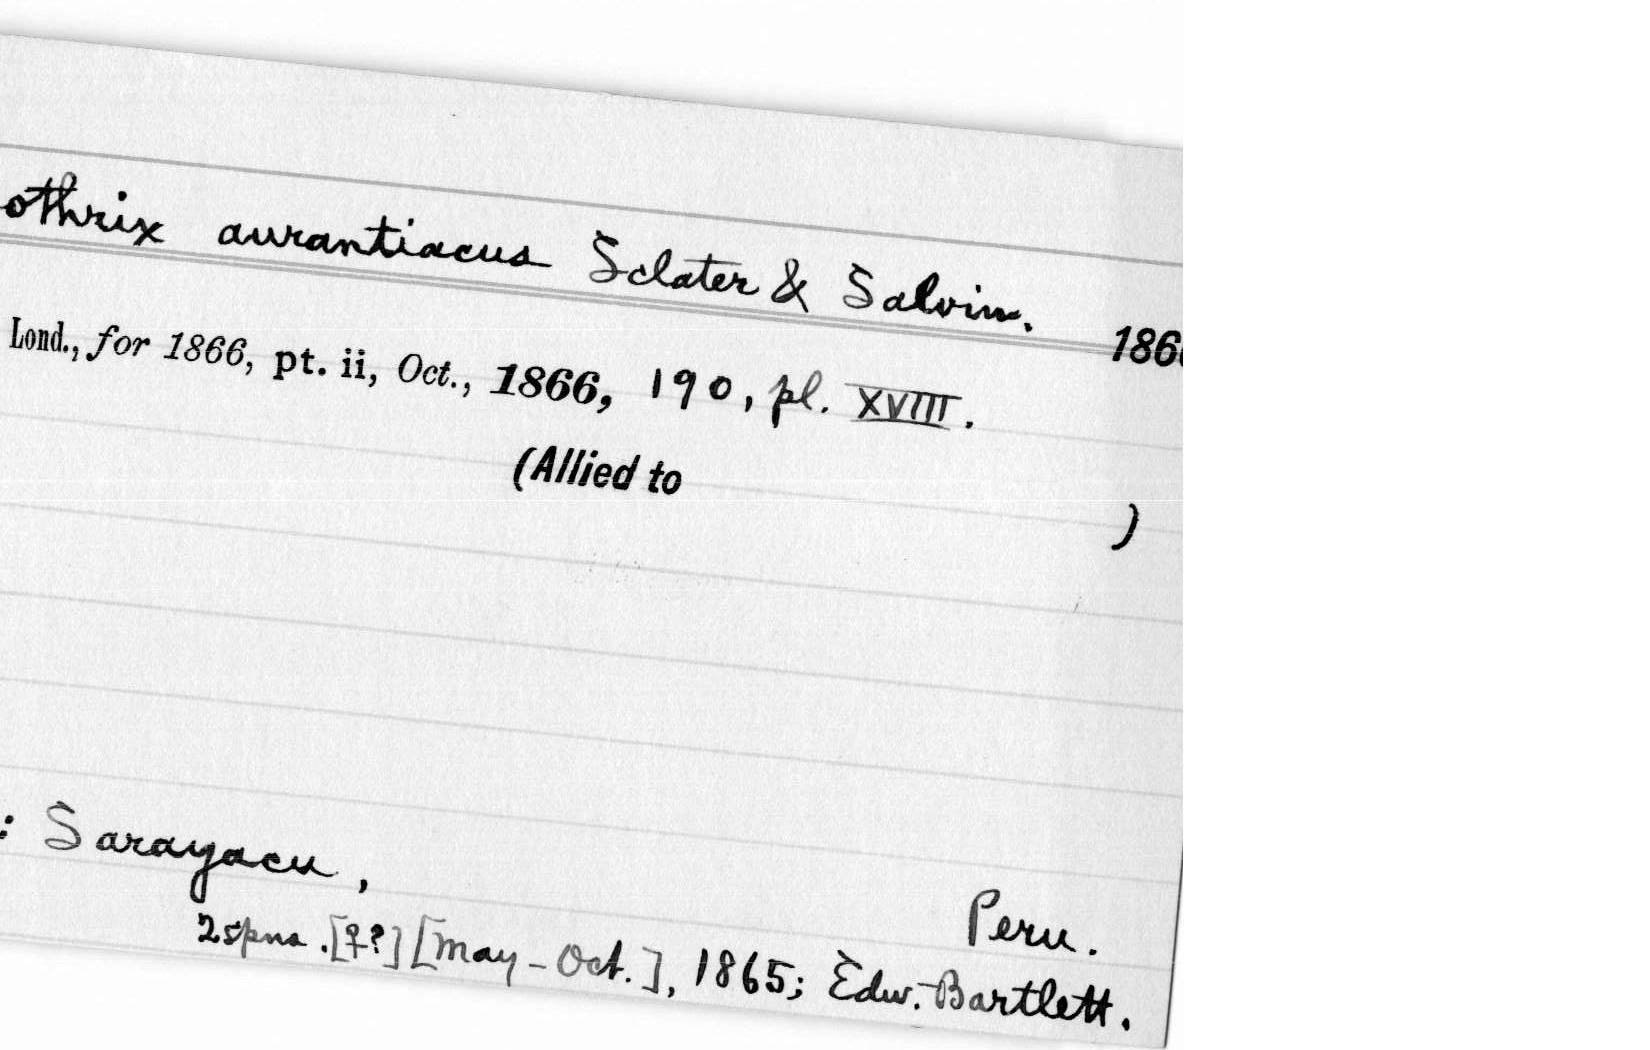 othrix aurantiacus Sclater & Salvin. 186
Lond., for 1866, pt. ii, Oct., 1866, 190, pl. XVIII.
(Allied to )
: Sarayacu, Peru.
2 spns. [♀?] [May-Oct.], 1865; Edw. Bartlett.